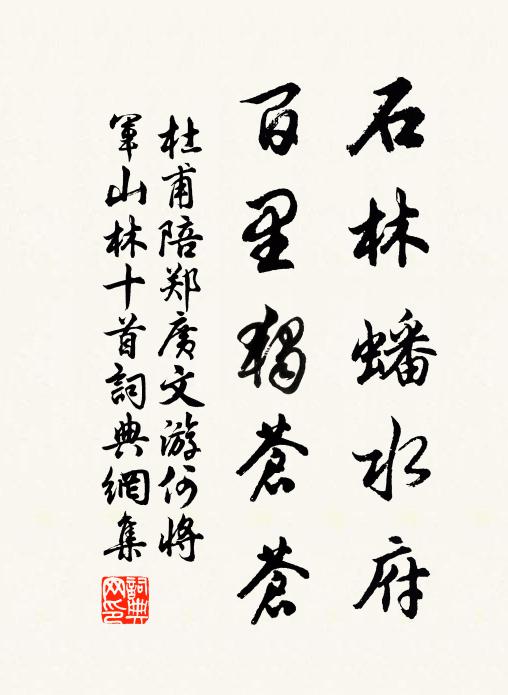 石林蟠水府
百里獨蒼蒼
杜甫陪郑廣文游何將
軍山林十首詞典網集
詞典網印